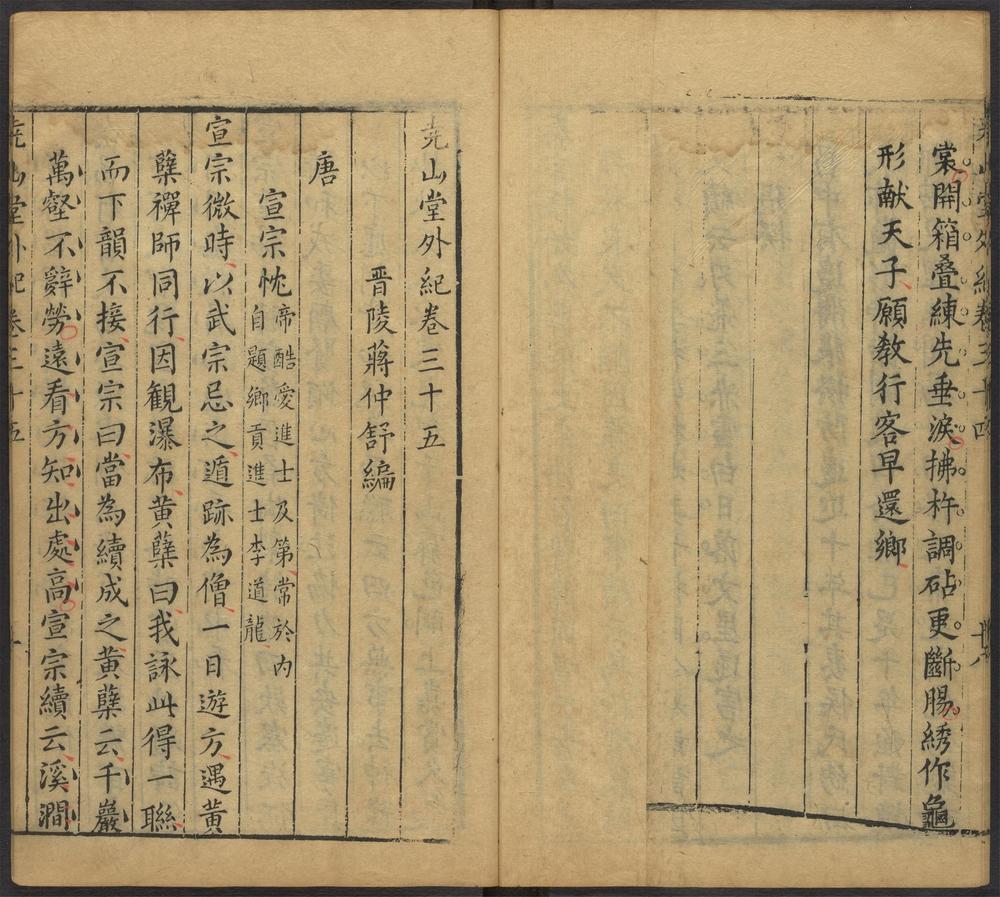 堯山堂外紀卷三十四
棠開箱叠練先垂淚拂杵調砧更斷腸綉作龜
形献天子願教行客早還鄉
堯山堂外紀卷三十五
晋陵蔣仲舒編
唐
宣宗忱帝酷愛進士及第常於内
自題鄉貢進士李道龍
宣宗微時以武宗忌之遁跡為僧一日遊方遇黄
蘗禪師同行因観瀑布黄蘗曰我詠此得一聯
而下韻不接宣宗曰當為續成之黄蘗云千巖
萬壑不辭勞遠看方知出處高宣宗續云溪澗
堯山堂外紀卷三十五 一